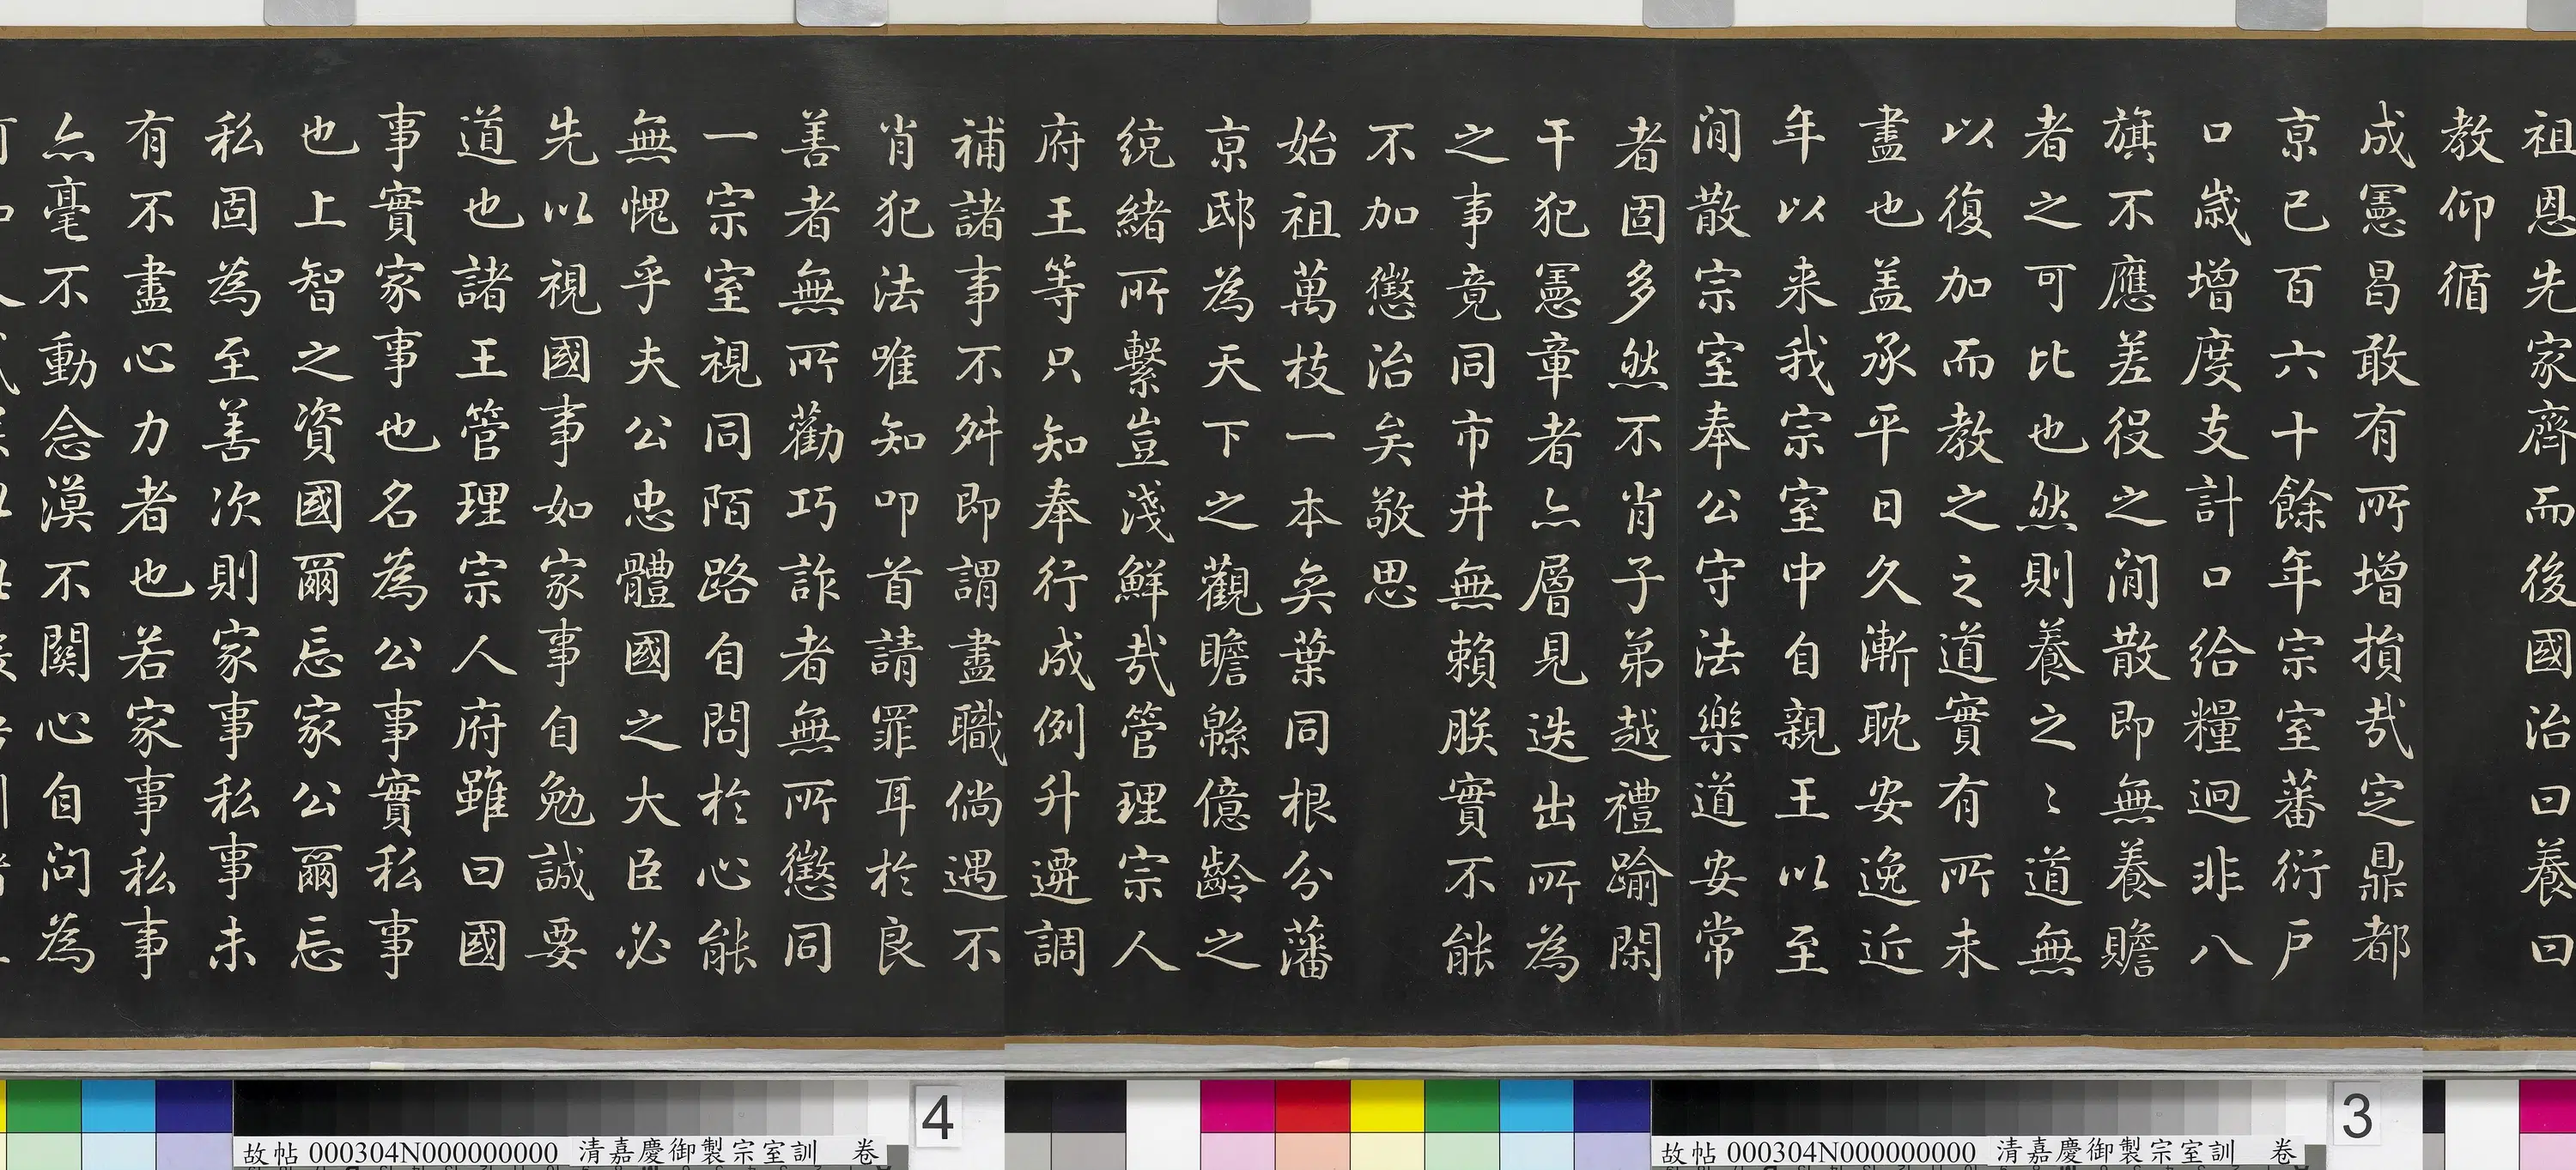 祖恩先家齊而後國治曰養曰
教仰循
成憲曷敢有所增損哉定鼎都
京已百六十餘年宗室蕃衍戶
口歲增度支計口給糧迥非八
旗不應差役之閒散即無養贍
者之可比也然則養之之道無
以復加而教之之道實有所未
盡也盖承平日久漸耽安逸近
年以来我宗室中自親王以至
閒散宗室奉公守法樂道安常
者固多然不肖子弟越禮踰閑
干犯憲章者亦層見迭出所為
之事竟同市井無賴朕實不能
不加懲治矣敬思
始祖萬枝一本矣葉同根分藩
京邸為天下之觀瞻緜億齡之
統緒所繫豈淺鮮哉管理宗人
府王等只知奉行成例升遷調
補諸事不舛即謂盡職倘遇不
肖犯法唯知叩首請罪耳於良
善者無所勸巧詐者無所懲同
一宗室視同陌路自問於心能
無愧乎夫公忠體國之大臣必
先以視國事如家事自勉誠要
道也諸王管理宗人府雖曰國
事實家事也名為公事實私事
也上智之資國爾忘家公爾忘
私固為至善次則家事私事未
有不盡心力者也若家事私事
亦毫不動念漠不關心自问為